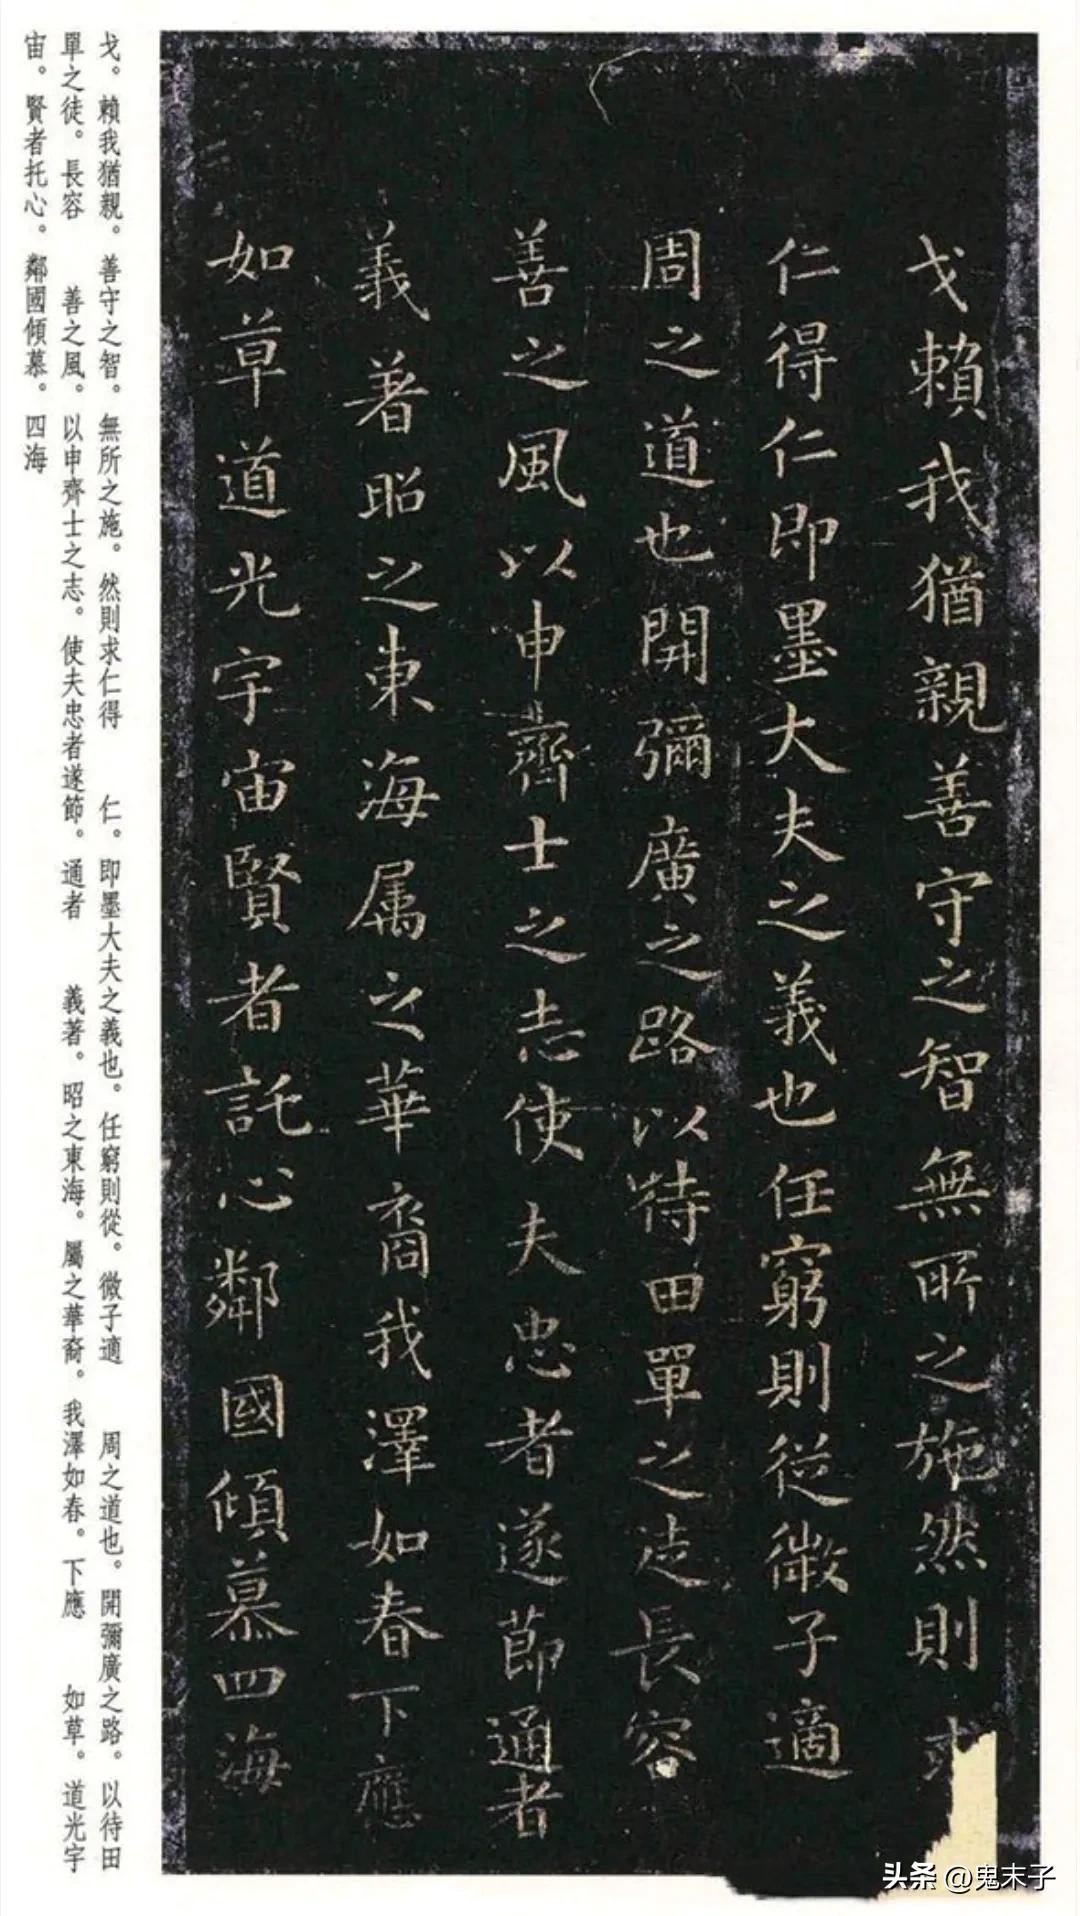 戈賴我猶親善守之智無所之施然則求
仁得仁即墨大夫之義也任窮則從微子適
周之道也開彌廣之路以待田單之徒長容
善之風以申齊士之志使夫忠者遂節通者
義著昭之東海属之華裔我澤如春下應
如草道光宇宙賢者託心鄰國傾慕四海
戈。賴我猶親。善守之智。無所之施。然則求仁得 仁。即墨大夫之義也。任窮則從。微子適 周之道也。開彌廣之路。以待田
單之徒。長容 善之風。以申齊士之志。使夫忠者遂節。通者 義著。昭之東海。屬之華裔。我澤如春。下應 如草。道光宇
宙。賢者托心。鄰國傾慕。四海
头条 @鬼末子